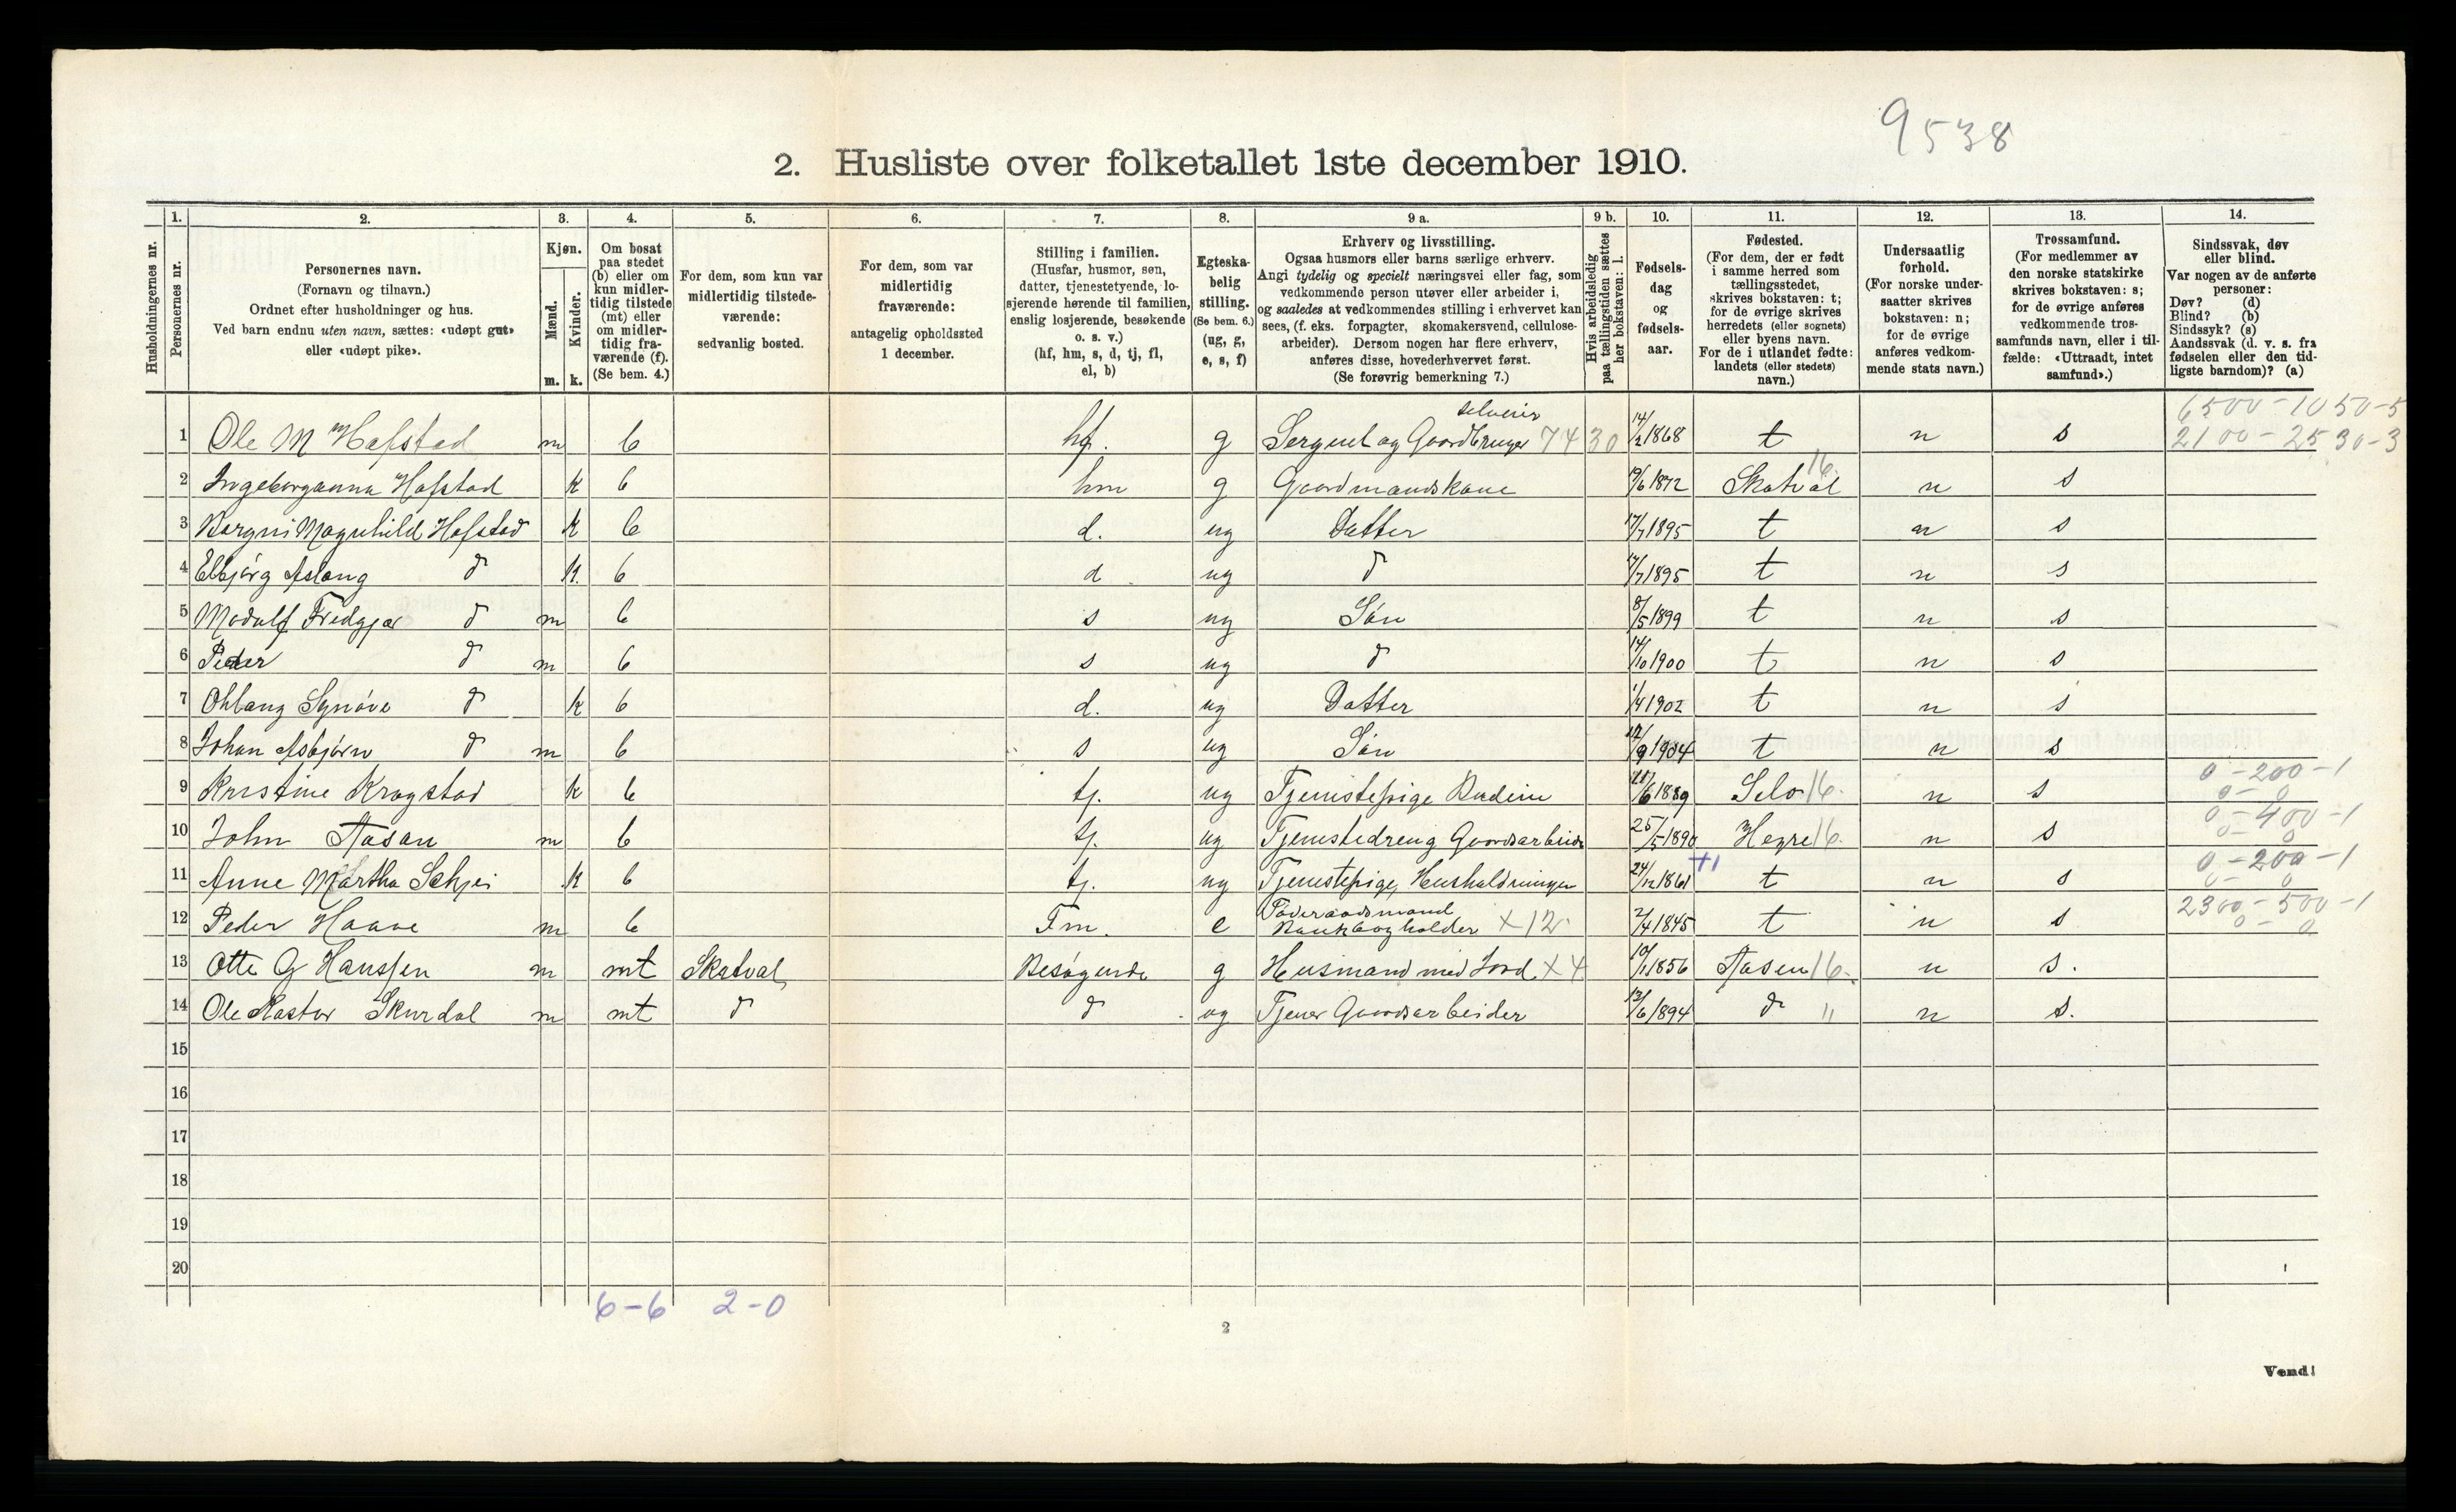 9538
2. Husliste over folketallet 1ste december 1910.
1. 2. 3. 4. 5. 6. 7. 8. 9 a. 9 b. 10. 11. 12. 13. 14.
Husholdningernes nr.
Personernes nr.
Personernes navn.
(Fornavn og tilnavn.)
Ordnet efter husholdninger og hus.
Ved barn endnu uten navn, sættes: «udøpt gut»
eller «udøpt pike».
Kjøn.
Mænd.
Kvinder.
m. k.
Om bosat
paa stedet
(b) eller om
kun midler-
tidig tilstede
(mt) eller
om midler-
tidig fra-
værende (f).
(Se bem. 4.)
For dem, som kun var
midlertidig tilstede-
værende:
sedvanlig bosted.
For dem, som var
midlertidig
fraværende:
antagelig opholdssted
1 december.
Stilling i familien.
(Husfar, husmor, søn,
datter, tjenestetyende, lo-
sjerende hørende til familien,
enslig losjerende, besøkende
o. s. v.)
(hf, hm, s, d, tj, fl,
el, b)
Egteska-
belig
stilling.
(Se bem. 6.)
(ug, g,
e, s, f)
Erhverv og livsstilling.
Ogsaa husmors eller barns særlige erhverv.
Angi tydelig og specielt næringsvei eller fag, som
vedkommende person utøver eller arbeider i,
og saaledes at vedkommendes stilling i erhvervet kan
sees, (f. eks. forpagter, skomakersvend, cellulose-
arbeider). Dersom nogen har flere erhverv,
anføres disse, hovederhvervet først.
(Se forøvrig bemerkning 7.)
Hvis arbeidsledig
paa tællingstiden sættes
her bokstaven: l.
Fødsels-
dag
og
fødsels-
aar.
Fødested.
(For dem, der er født
i samme herred som
tællingsstedet,
skrives bokstaven: t;
for de øvrige skrives
herredets (eller sognets)
eller byens navn.
For de i utlandet fødte:
landets (eller stedets)
navn.)
Undersaatlig
forhold.
(For norske under-
saatter skrives
bokstaven: n;
for de øvrige
anføres vedkom-
mende stats navn.)
Trossamfund.
(For medlemmer av
den norske statskirke
skrives bokstaven: s;
for de øvrige anføres
vedkommende tros-
samfunds navn, eller i til-
fælde: «Uttraadt, intet
samfund».)
Sindssvak, døv
eller blind.
Var nogen av de anførte
personer:
Døv? (d)
Blind? (b)
Sindssyk? (s)
Aandssvak (d. v. s. fra
fødselen eller den tid-
ligste barndom)? (a)
selveier 6500-1050-5
1 Ole M Hafstad m b hf. g Sergent og Gaardbruger 7430 14/2 1868 t n s 2100-2530-3
2 Ingeborganna Hafstad k b hm g Gaardmandskone 19/6 1872 Skatval 16 n s
3 Bergni Magnhild Hafstad k b d. ug Datter 17/7 1895 t n s
4 Elbjørg Aslaug d k b d ug d 17/7 1895 t n s
5 Modulf Fredgjar d m b s ug Søn 8/5 1899 t n s
6 Peder d m b s ug d 14/10 1900 t n s
7 Ohlaug Synöve d k b d. ug Datter 1/4 1902 t n s
8 Johan Asbjørn d m b s ug Søn 12/9 1904 t n s
0-200-1
9 Kristine Krogstad k b tj. ug Tjenestepige Budeie /6 1889 Selo 16. n s 0-0
0-400-1
10 John Aasan m b tj. ug Tjenestedreng Gaardsarbeide 25/5 1890 Hegre 16. n s 0-0
+1 0-200-1
11 Anne Martha Schjei k b tj. ug Tjenestepige, 24/12 1861 t n s 0-0
Föderaadsmand 2300-500-1
12 Peder Haave m b Fm. e Bankbogholder X12 2/4 1845 t n s 0-0
13 Otte G Hanssen m mt Skatval Besøgende g Husmand med Jord X4 10/1 1856 Aasen 16. n s.
14 Ole Kastor Skurdal m mt d d ug Tjener Gaardsarbeider 13/6 1894 d " n s.
15
16
17
18
19
20
6-6 2-0
2
Vend!